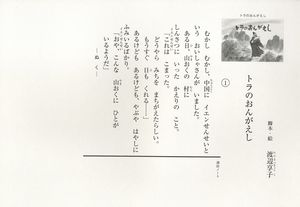 トラのおんがえし
トラのおんがえし
脚本・絵 渡辺享子
①
むかし むかし、中国に イエンせんせいと
いう おいしゃさんが いました。
ある日、山おくの 村に
しんさつに いった かえりの こと。
「これは こまった。
どうやら みちを まちがえたらしい。
もうすぐ 日も くれる──」
あるけども あるけども、やぶや はやしに
ふみいるばかり。
「おや、こんな 山おくに ひとが
いるようだ」
―ぬく―